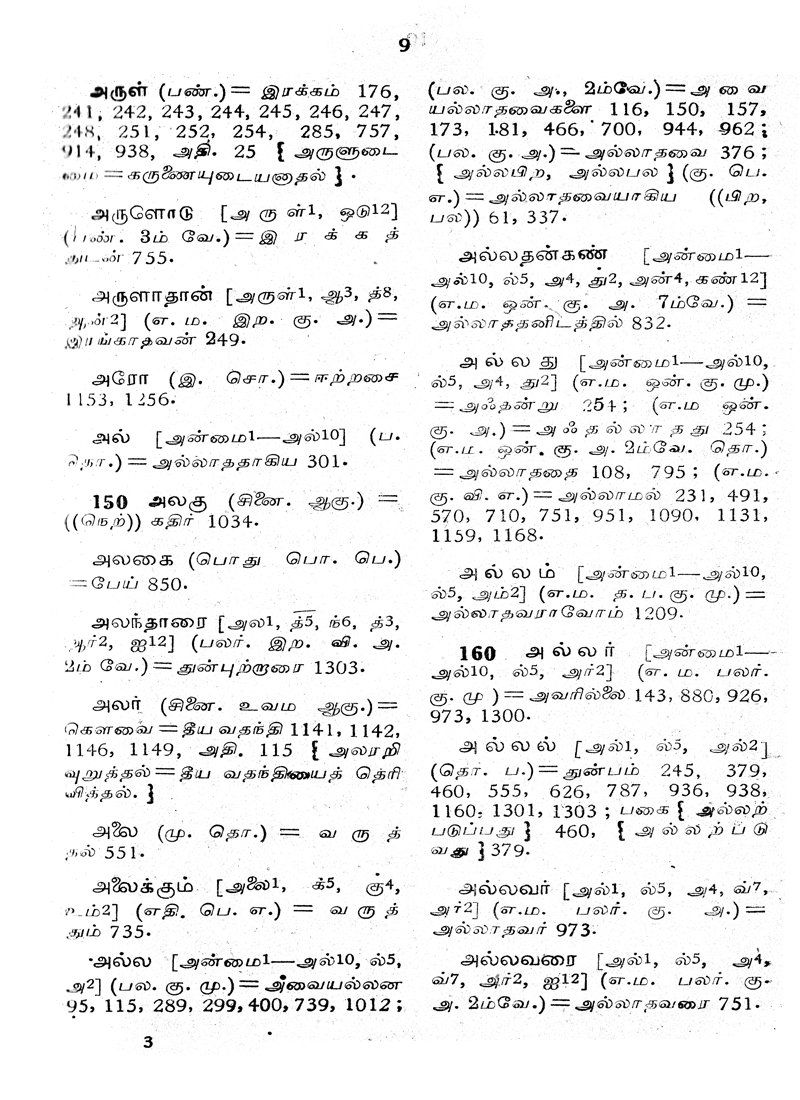 9
அருள் (பண்.) = இரக்கம் 176,
241, 242, 243, 244, 245, 246, 247,
248, 251, 252, 254, 285, 757,
914, 938, அதி. 25 { அருளுடை
மை = கருணையுடையனாதல் } .
அருளொடு [அருள்1, ஒடு12]
(பண். 3ம் வே.) = இரக்கத்
துடன் 755.
அருளாதான் [அருள்1, ஆ3, த்8,
ஆன்2] (எ. ம. இற. கு. அ.) =
இரங்காதவன் 249.
அரோ (இ. சொ.) = ஈற்றசை
1153, 1256.
அல் [அன்மை1—அல்10] (ப.
தொ.) = அல்லாததாகிய 301.
150 அலகு (சினை. ஆகு.) =
((நெற்)) கதிர் 1034.
அலகை (பொது பொ. பெ.)
= பேய் 850.
அலந்தாரை [அல1, த்5, ந்6, த்3,
ஆர்2, ஐ12] (பலர். இற. வி. அ.
2ம் வே.) = துன்புற்றாரை 1303.
அலர் (சினை. உவம ஆகு.) =
கௌவை = தீய வதந்தி 1141, 1142,
1146, 1149, அதி. 115 { அலரறி
வுறுத்தல் = தீய வதந்தியைத் தெரி
வித்தல். }
அலை (மு. தொ.) = வருத்
தல் 551.
அலைக்கும் [அலை1, க்5, கு4,
உம்2] (எதி. பெ. எ.) = வருத்
தும் 735.
அல்ல [அன்மை1—அல்10, ல்5,
அ2] (பல. கு. மு.) = அவையல்லன
95, 115, 289, 299, 400, 739, 1012 ;
3
(பல. கு. அ., 2ம்வே.) = அவை
யல்லாதவைகளை 116, 150, 157,
173, 181, 466, 700, 944, 962 ;
(பல. கு. அ.) = அல்லாதவை 376 ;
{ அல்லபிற, அல்லபல } (கு. பெ.
எ.) = அல்லாதவையாகிய ((பிற,
பல)) 61, 337.
அல்லதன்கண் [அன்மை1—
அல்10, ல்5, அ4, து2, அன்4, கண்12]
(எ.ம. ஒன். கு. அ. 7ம்வே.) =
அல்லாததனிடத்தில் 832.
அல்லது [அன்மை1—அல்10,
ல்5, அ4, து2] (எ.ம. ஒன். கு. மு.)
= அஃதன்று 254 ; (எ.ம ஒன்.
கு. அ.) = அஃதல்லாதது 254 ;
(எ.ம. ஒன். கு. அ. 2ம்வே. தொ.)
= அல்லாததை 108, 795 ; (எ.ம.
கு. வி. எ.) = அல்லாமல் 231, 491,
570, 710, 751, 951, 1090, 1131,
1159, 1168.
அல்லம் [அன்மை1—அல்10,
ல்5, அம்2] (எ.ம. த. ப. கு. மு.) =
அல்லாதவராவோம் 1209.
160 அல்லர் [அன்மை1—
அல்10, ல்5, அர்2] (எ. ம. பலர்.
கு. மு ) = அவரில்லை 143, 880, 926,
973, 1300.
அல்லல் [அல்1, ல்5, அல்2]
(தொ. ப.) = துன்பம் 245, 379,
460, 555, 626, 787, 936, 938,
1160, 1301, 1303 ; பகை { அல்லற்
படுப்பது } 460, { அல்லற்ப்டு
வது } 379.
அல்லவர் [அல்1, ல்5, அ4, வ்7,
அர்2] (எ.ம. பலர். கு. அ.) =
அல்லாதவர் 973.
அல்லவரை [அல்1, ல்5, அ4,
வ்7, அர்2, ஐ12] (எ.ம. பலர். கு.
அ. 2ம்வே.) = அல்லாதவரை 751.